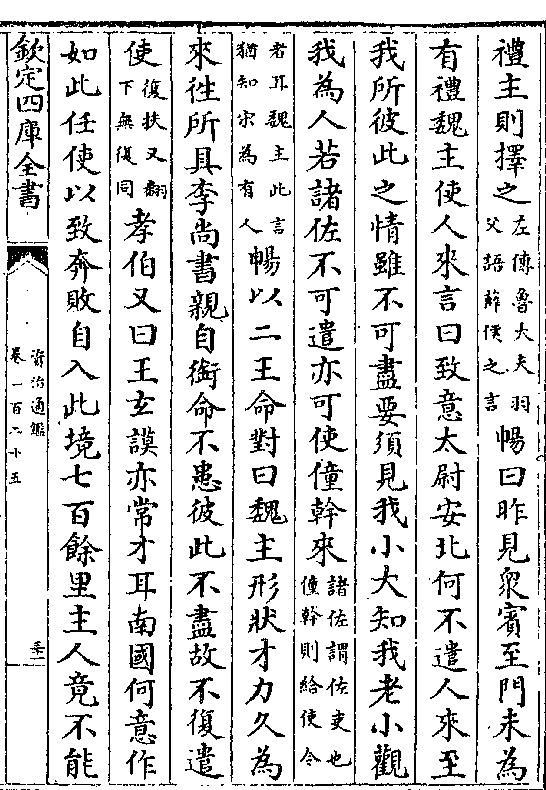 禮主則擇之左傳魯大夫羽父語薛侯之言暢曰昨見衆賓至門未為
有禮魏主使人來言曰致意太尉安北何不遣人來至
我所彼此之情雖不可盡要須見我小大知我老小觀
我為人若諸佐不可遣亦可使僮幹來諸佐謂佐吏也僮幹則給使令
者耳魏主此言猶知宋為有人暢以二王命對曰魏主形狀才力久為
來往所具李尚書親自銜命不患彼此不盡故不復遣
使復扶又翻下無復同孝伯又曰王玄謨亦常才耳南國何意作
如此任使以致奔敗自入此境七百餘里主人竟不能
欽定四庫全書
資治通鑑
卷一百二十五
三十一